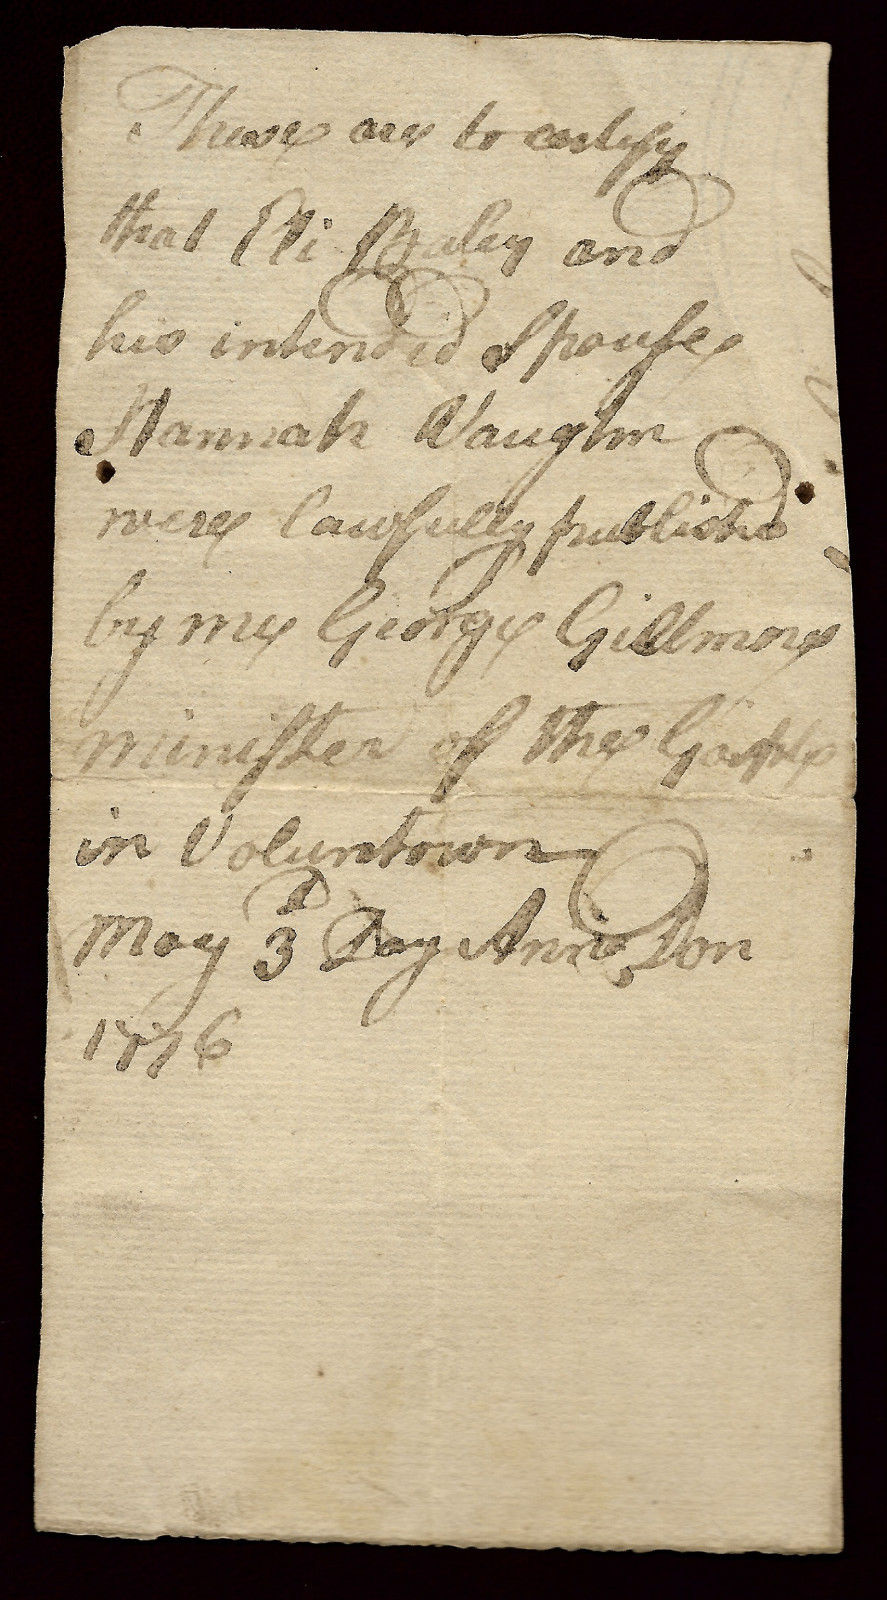 These are to certify
that Eli Baley and
his intended Spouse
Hannah Vaughn
were lawfully published
by me George Gillmore
minister of the Gosple
in Voluntown
May 3d Day Anno Dom
1776